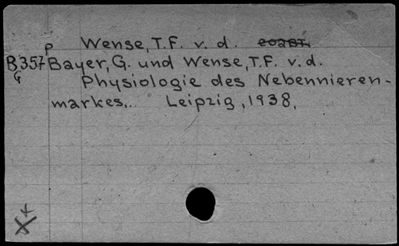 p Wense, T.F. v. d.
B357 Bayer, G. und Wense, T.F. v.d.
G Physiologie des Nebennieren-
markes,. Leipzig, 1938,
X